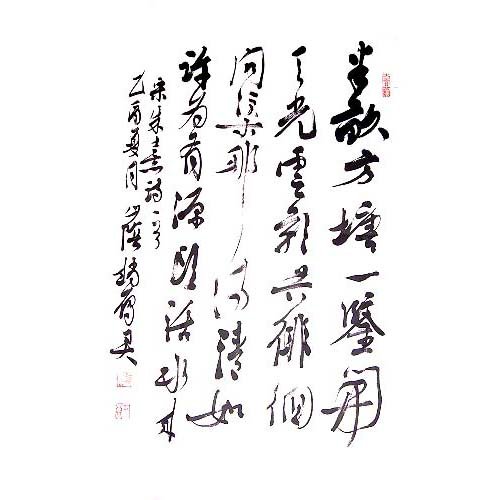 半畝方塘一鑒開
天光雲影共徘徊
問渠那得清如
許為有源頭活水來
宋朱熹詩一首
乙酉夏月山陰